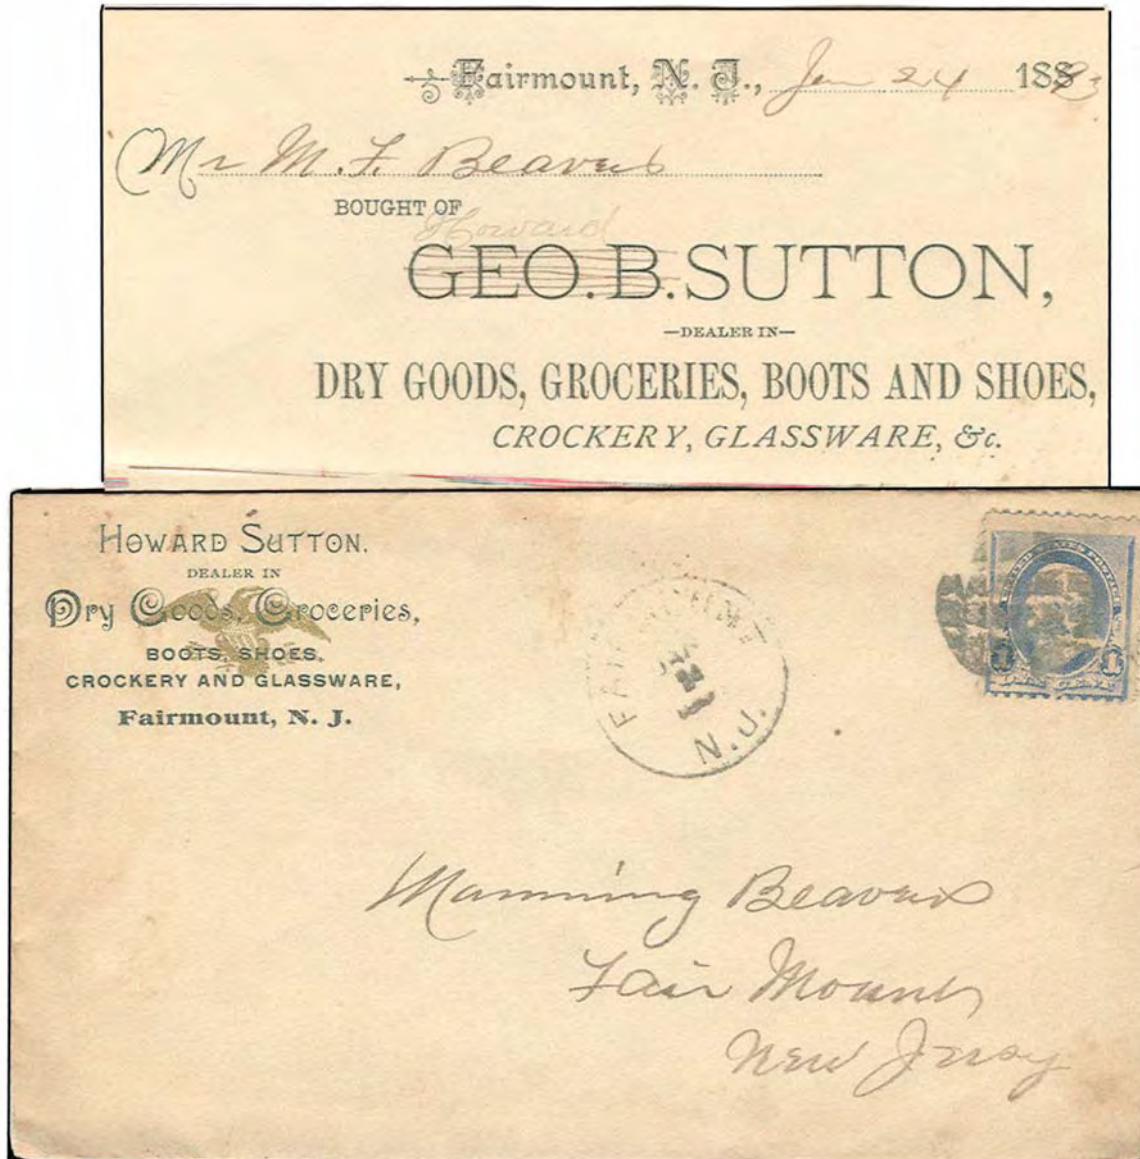 Fairmount, N. J., Jan 24 188
Mr M. F. Beavers
BOUGHT OF
Howard
GEO. B. SUTTON,
—DEALER IN—
DRY GOODS, GROCERIES, BOOTS AND SHOES,
CROCKERY, GLASSWARE, &c.
HOWARD SUTTON.
DEALER IN
Dry Goods, Groceries,
BOOTS, SHOES,
CROCKERY AND GLASSWARE,
Fairmount, N. J.
FAIRMOUNT
N.J.
UNITED STATES POSTAGE
1 1
Manning Beavers
Fair Mount
New Jersy